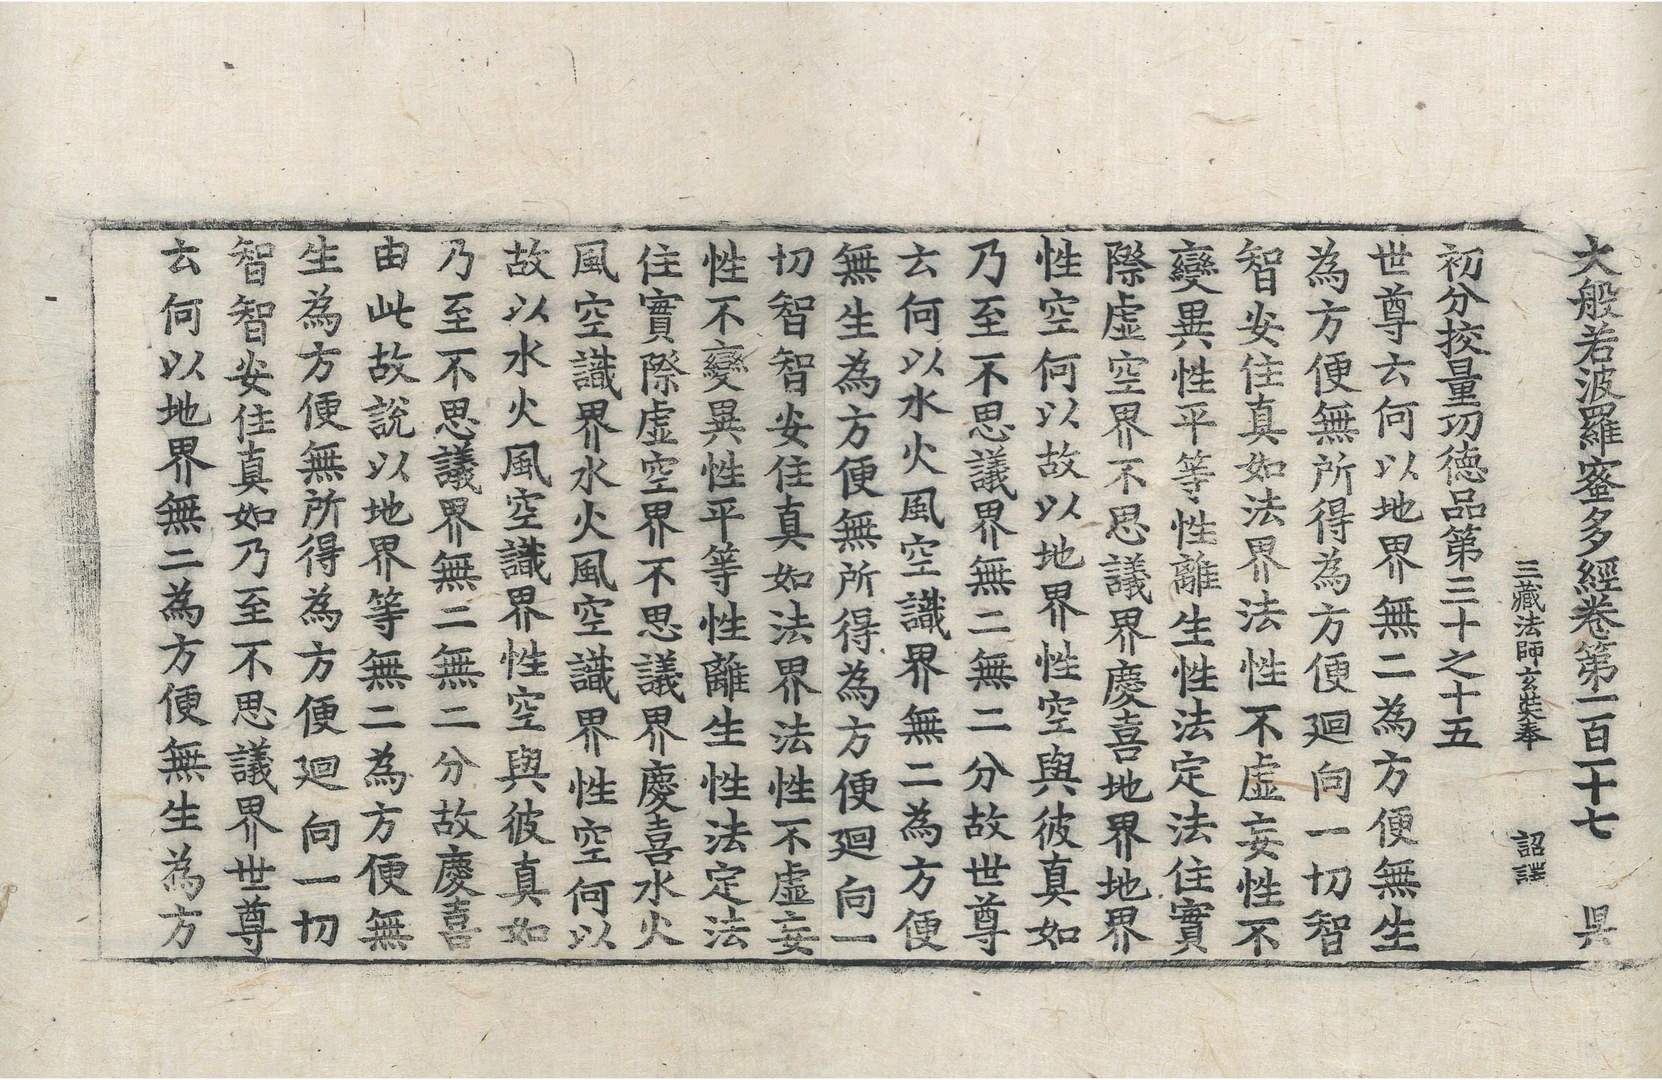 大般若波羅蜜多經卷第一百一十七 昃
三藏法師玄奘奉 詔譯
初分挍量功德品第三十之十五
世尊云何以地界無二為方便無生
為方便無所得為方便廻向一切智
智安住真如法界法性不虛妄性不
變異性平等性離生性法定法住實
際虛空界不思議界慶喜地界地界
性空何以故以地界性空與彼真如
乃至不思議界無二無二分故世尊
云何以水火風空識界無二為方便
無生為方便無所得為方便廻向一
切智智安住真如法界法性不虛妄
性不變異性平等性離生性法定法
住實際虛空界不思議界慶喜水火
風空識界水火風空識界性空何以
故以水火風空識界性空與彼真如
乃至不思議界無二無二分故慶喜
由此故說以地界等無二為方便無
生為方便無所得為方便廻向一切
智智安住真如乃至不思議界世尊
云何以地界無二為方便無生為方